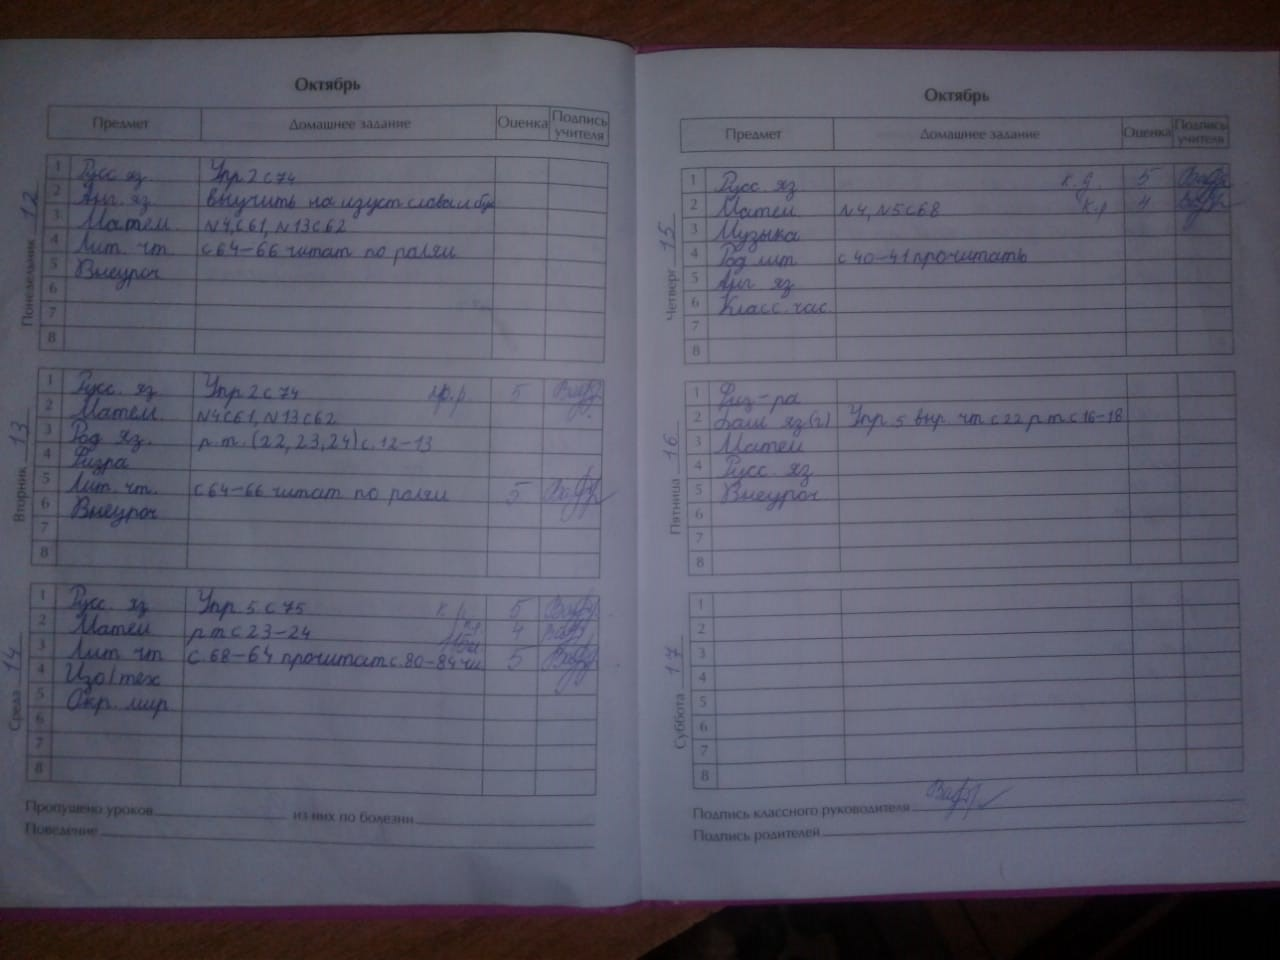 Октябрь
Предмет Домашнее задание Оценка Подпись учителя
Понедельник 12
1 Русс. яз. Упр 2 с 74
2 Анг. яз выучить на изуст слова и
3 Матем №4, с61, №13 с62
4 Лит. чт. с 64-66 читат по ролям
5 Внеуроч
6
7
8
Вторник 13
1 Русс. яз. Упр 2 с 74 5
2 Матем. №4 с61, №13 с62
3 Род яз. р.т. (22, 23, 24) с. 12-13
4 Физра
5 Лит. чт. с 64-66 читат по ролям 5
6 Внеуроч
7
8
Среда 14
1 Русс. яз Упр 5 с 75 к. р. 5
2 Матем р т с 23-24 4
3 Лит чт с. 68-64 прочитат с. 80-84 5
4 Изо/тех
5 Окр. мир
6
7
8
Пропущено уроков из них по болезни
Поведение
Октябрь
Предмет Домашнее задание Оценка Подпись учителя
Четверг 15
1 Русс. яз к. д. 5
2 Матем №4, №5 с 68 к.р 4
3 Музыка
4 Род лит с 40-41 прочитать
5 Анг яз
6 Класс. час
7
8
Пятница 16
1 Физ-ра
2 Баш яз (г) Упр 5 выр. чт с 22 р т с 16-18
3 Матем
4 Русс яз
5 Внеуроч
6
7
8
Суббота 17
1
2
3
4
5
6
7
8
Подпись классного руководителя
Подпись родителей